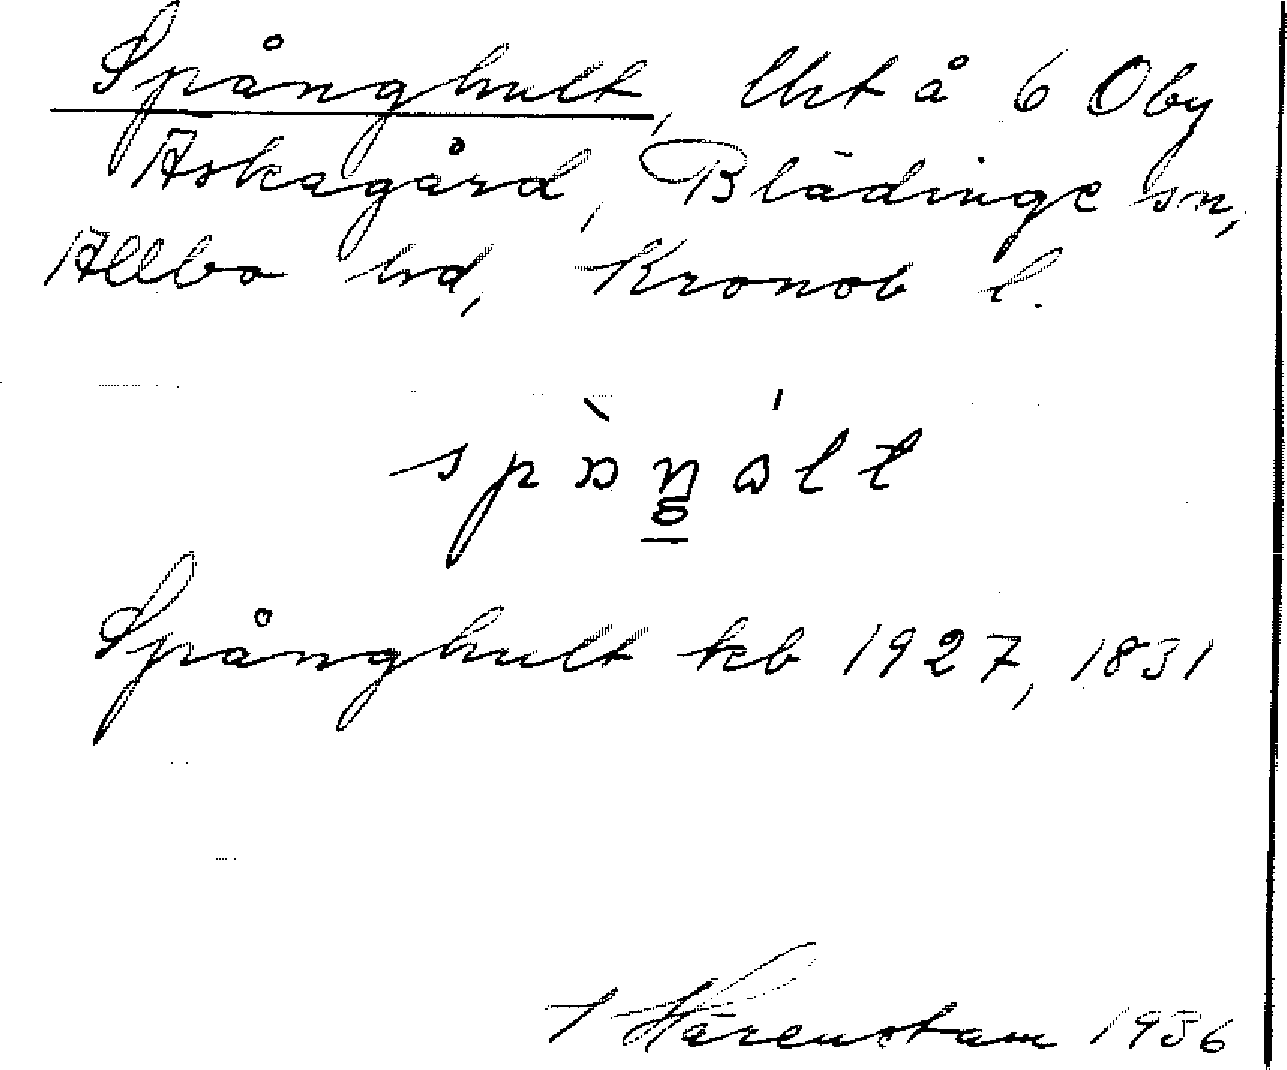 Spånghult, lht å 6 Oby
Askagård, Blädinge sn,
Allbo hd, Kronob l.
Spånghult kb 1927, 1831
Härenstam 1936